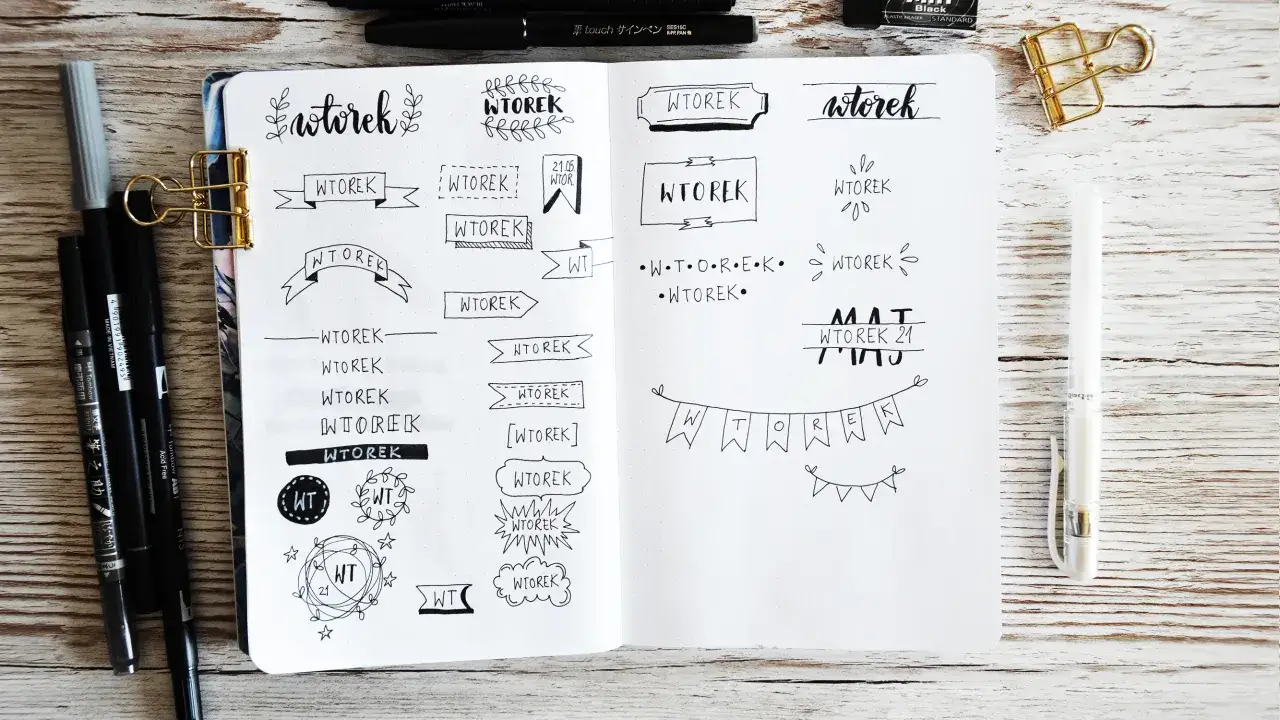 touch サインペン
Black
PLASTIC ERASER STANDARD
wtorek
WTOREK
WTOREK
WTOREK
21.05.
WTOR.
WTOREK
WT
WTOREK
WTOREK
WTOREK
WTOREK
WTOREK
WTOREK
WTOREK
WTOREK
WT
WT
WT
21
WT
WTOREK
WTOREK
[WTOREK]
WTOREK
WTOREK
WTOREK
WTOREK
wtorek
WTOREK
WTOREK
•W•T•O•R•E•K•
•WTOREK•
WTOREK
MAJ
WTOREK 21
MAJ
WTOREK
MADE IN VIETNAM
Tombow
Acid Free